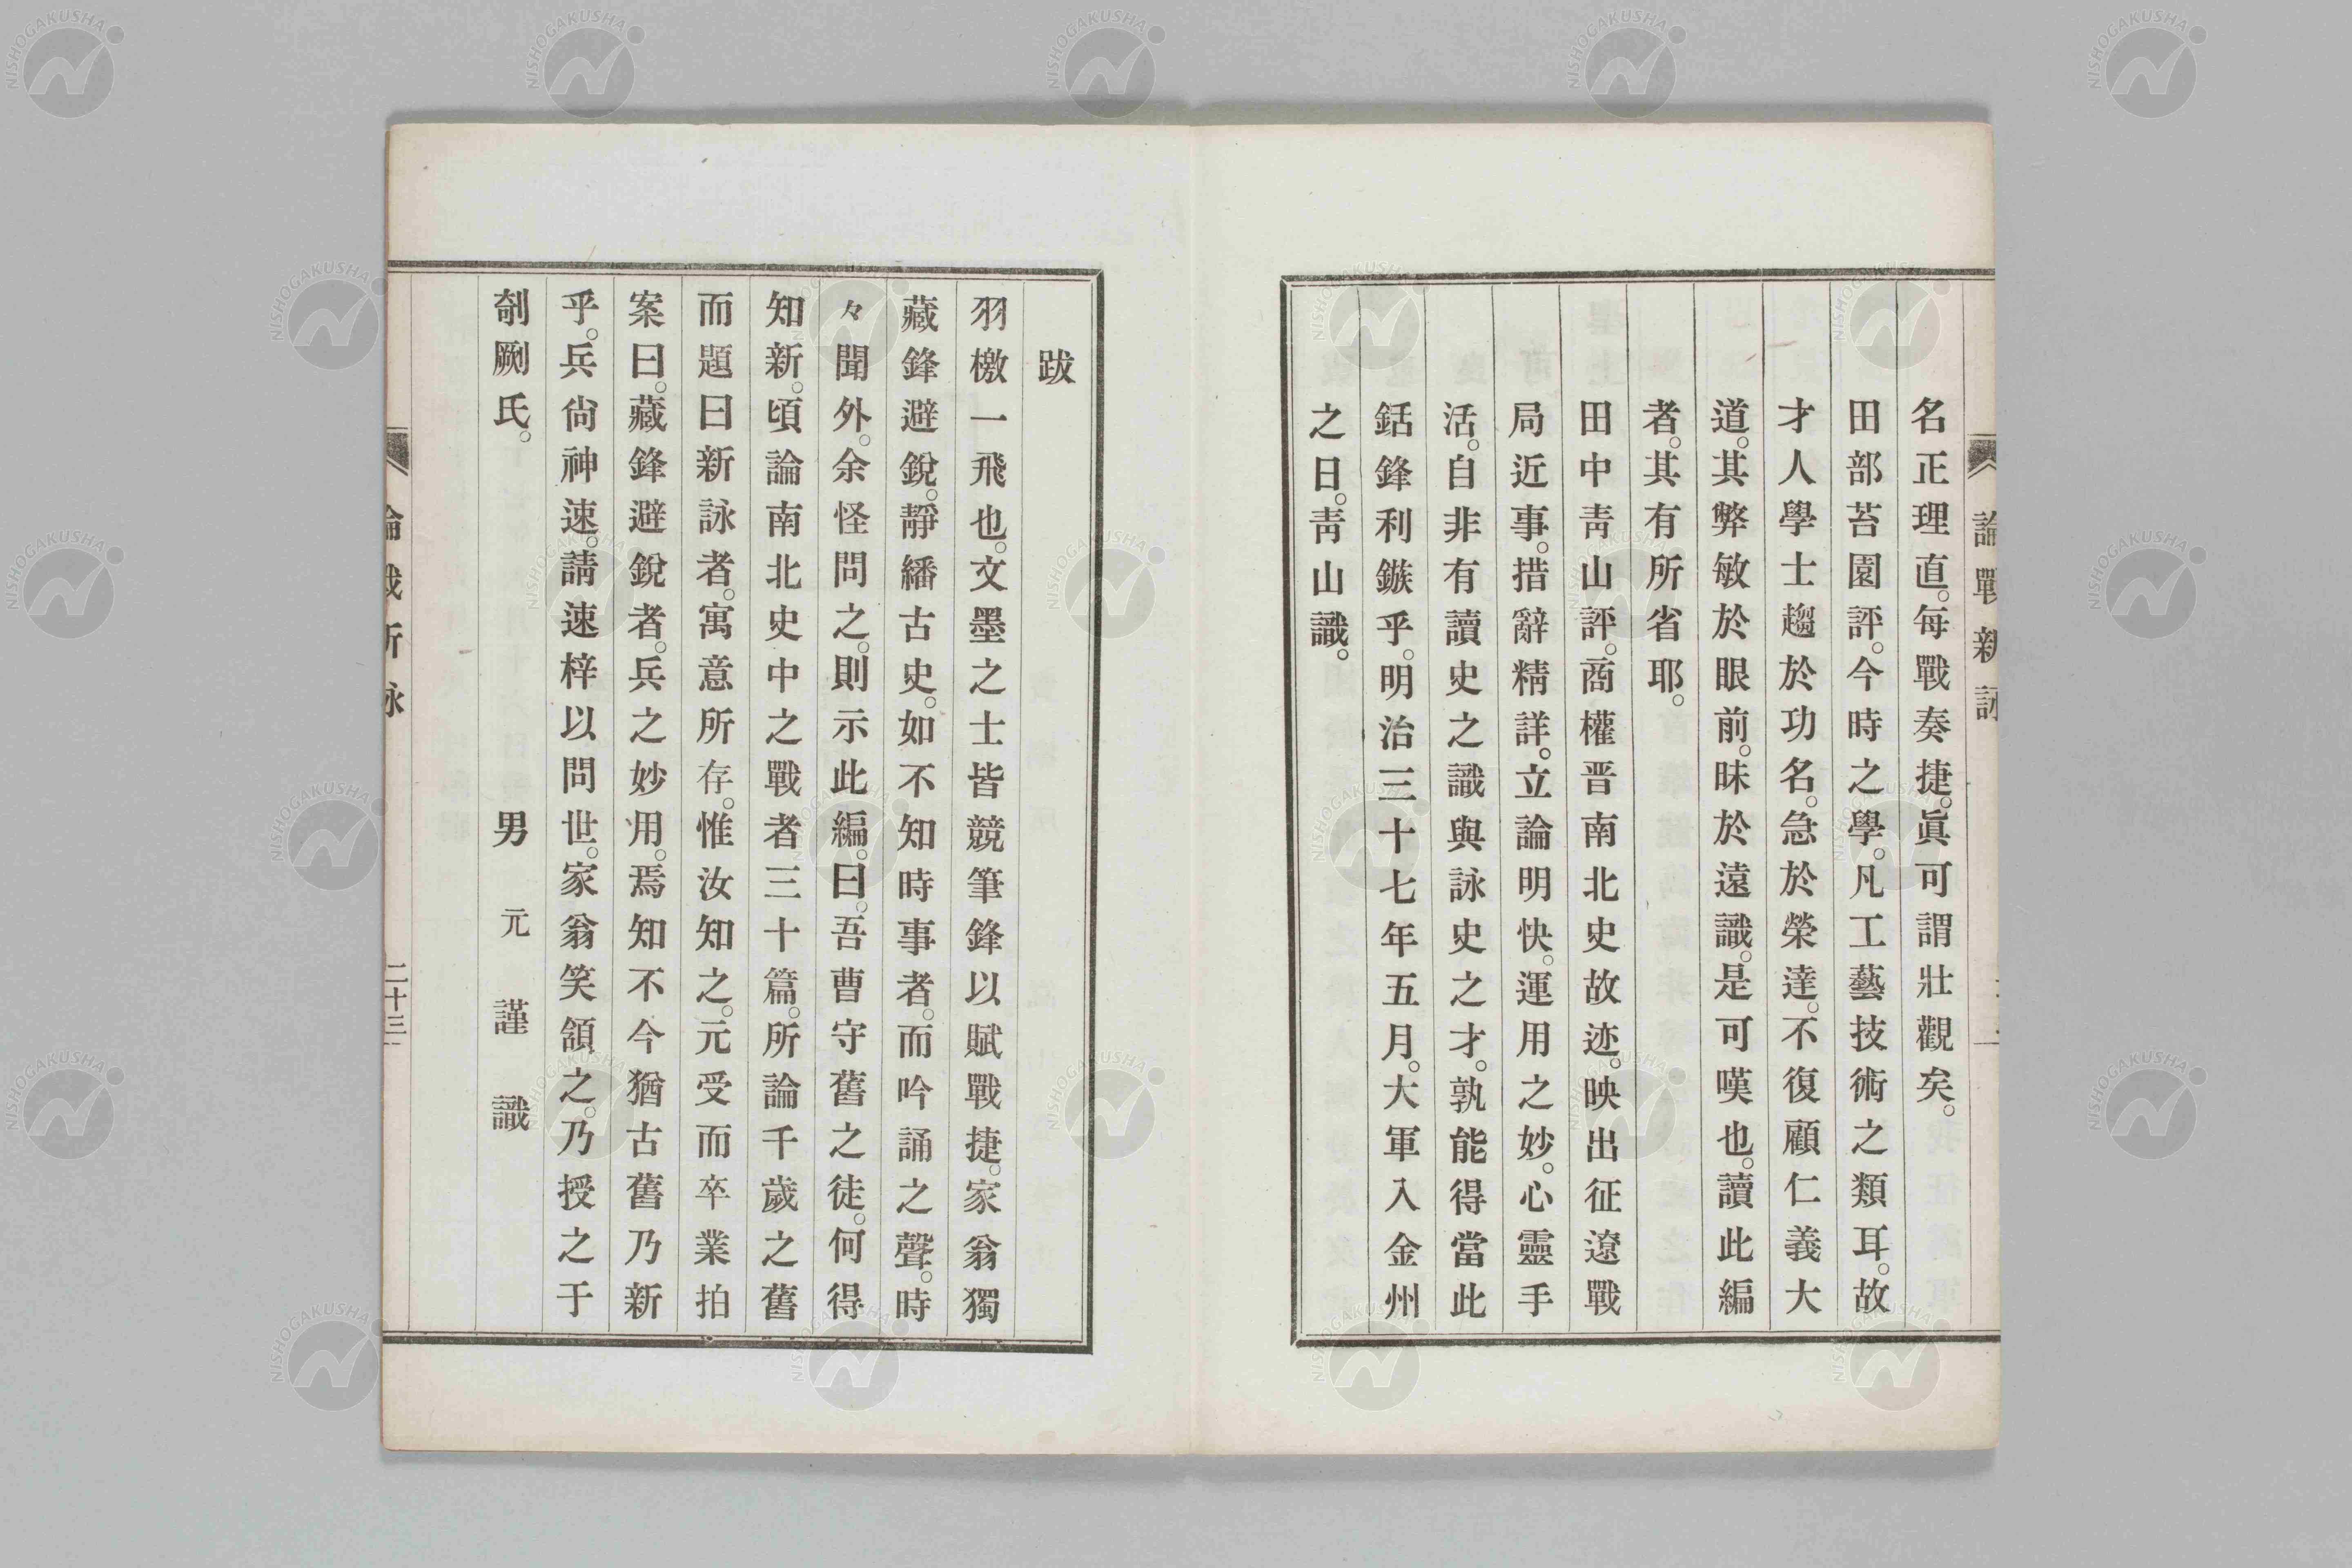 論戰新詠
名正理直。每戰奏捷。眞可謂壯觀矣。
田部苔園評。今時之學。凡工藝技術之類耳。故
才人學士趨於功名。急於榮達。不復顧仁義大
道。其弊敏於眼前。昧於遠識。是可嘆也。讀此編
者。其有所省耶。
田中靑山評。商權晋南北史故迹。映出征遼戰
局近事。措辭精詳。立論明快。運用之妙。心靈手
活。自非有讀史之識與詠史之才。孰能得當此
銛鋒利鏃乎。明治三十七年五月。大軍入金州
之日。靑山識。
跋
羽檄一飛也。文墨之士皆競筆鋒以賦戰捷。家翁獨
藏鋒避銳。靜繙古史。如不知時事者。而吟誦之聲。時
々聞外。余怪問之。則示此編。曰。吾曹守舊之徒。何得
知新。頃論南北史中之戰者三十篇。所論千歲之舊
而題曰新詠者。寓意所存。惟汝知之。元受而卒業拍
案曰。藏鋒避銳者。兵之妙用。焉知不今猶古舊乃新
乎。兵尙神速。請速梓以問世。家翁笑頷之。乃授之于
剞劂氏。
男 元 謹 識
論戰新詠
二十三
NISHOGAKUSHA